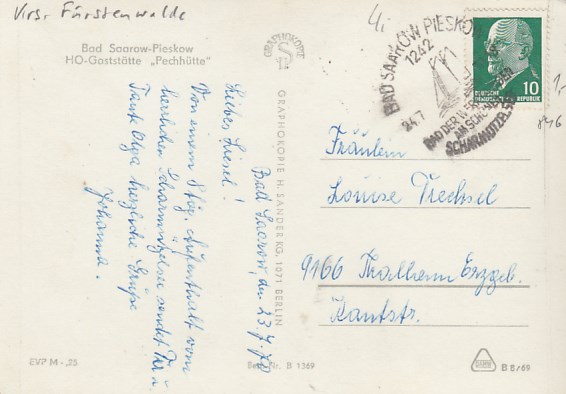 Krs. Fürstenwalde
Bad Saarow-Pieskow
HO-Gaststätte „Pechhütte"
Bad Saarow, den 23.7.70
Liebes Liesel!
Von einem 8 tg. Aufenthalt vom
herrlichen Scharmützelsee sendet Dir u.
Tante Olga herzliche Grüße
Johanna.
EVP M -,25
Best.-Nr. B 1369
GRAPHOKOPIE
GRAPHOKOPIE H. SANDER KG. 1071 BERLIN
BAD SAAROW PIESKOW
1242
24.7
SCHARMÜTZELSEE
DEUTSCHE
DEMOKRATISCHE REPUBLIK
10
1,-
846
Fräulein
Louise Trechsel
9166 Thalheim Erzgeb.
Kantstr.
B 5/69